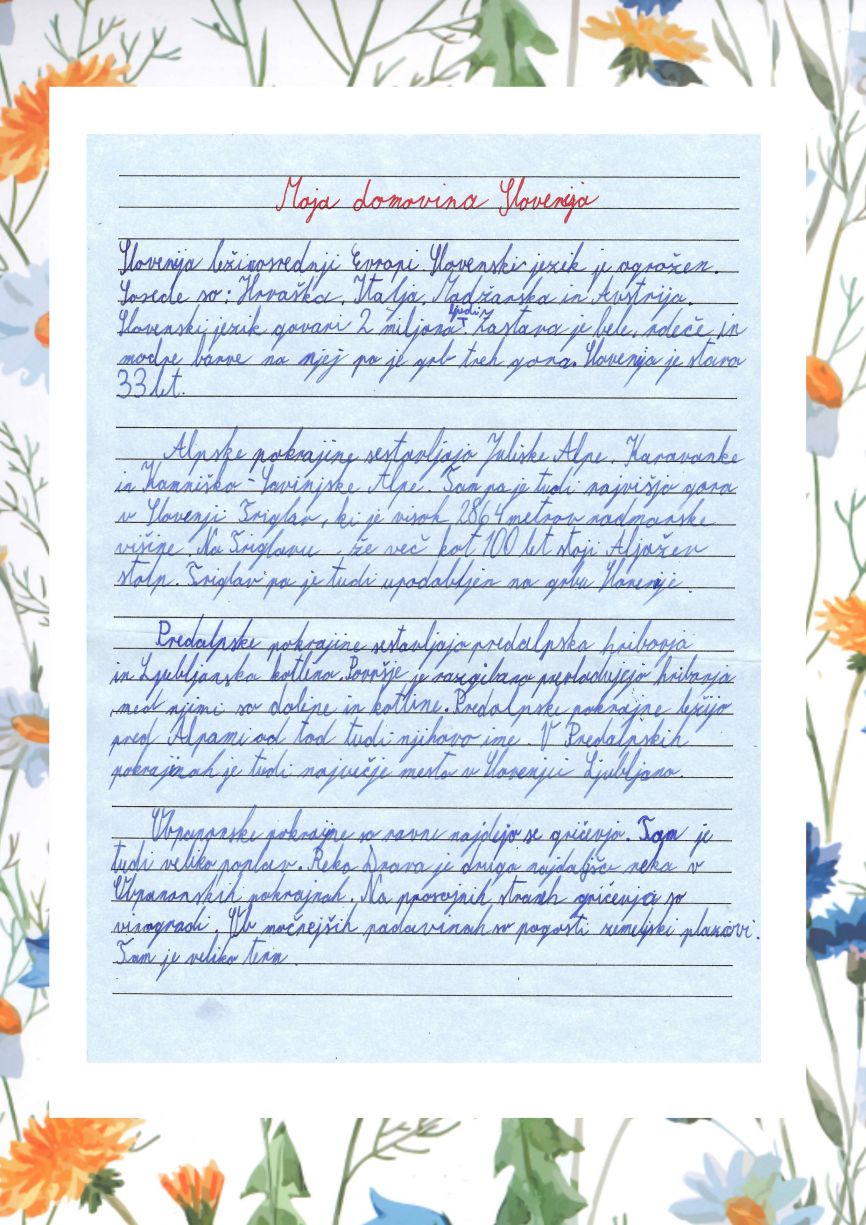 Moja domovina Slovenija
Slovenija leži v osrednji Evropi. Slovenski jezik je ogrožen.
Sosede so: Hrvaška, Italja, Madžarska in Avstrija.
Slovenski jezik govari 2 miljona ljudi. Zastava je bele, rdeče in
modre barve na njej pa je grb treh gora. Slovenija je stara
33 let.
Alpske pokrajine sestavljajo Juliske Alpe, Karavanke
in Kamniško-Savinjske Alpe. Tam pa je tudi najvišja gora
v Slovenji Triglav, ki je visok 2864 metrov nadmorske
višine. Na Triglavu, že več kot 100 let stoji Aljažev
stolp. Triglav pa je tudi upodabljen na grbu Slovenije.
Predalpske pokrajine sestavljajo predalpska hribovja
in Ljubljanska kotlina. Površje je razgibano prevladujejo hribovja
med njimi so doline in kotline. Predalpske pokrajne ležijo
pred Alpami od tod tudi njihovo ime. V Predalpskih
pokrajinah je tudi največje mesto v Slovenjii Ljubljana.
Obpanonske pokrajne so ravni najdejo se gričevja. Tam je
tudi veliko poplav. Reka Drava je druga najdaljša reka v
Obpanonskih pokrajnah. Na prosojnih straneh gričevja so
vinogradi. Ob močnejših padavinah so pogosti zemeljski plazovi.
Tam je veliko term.